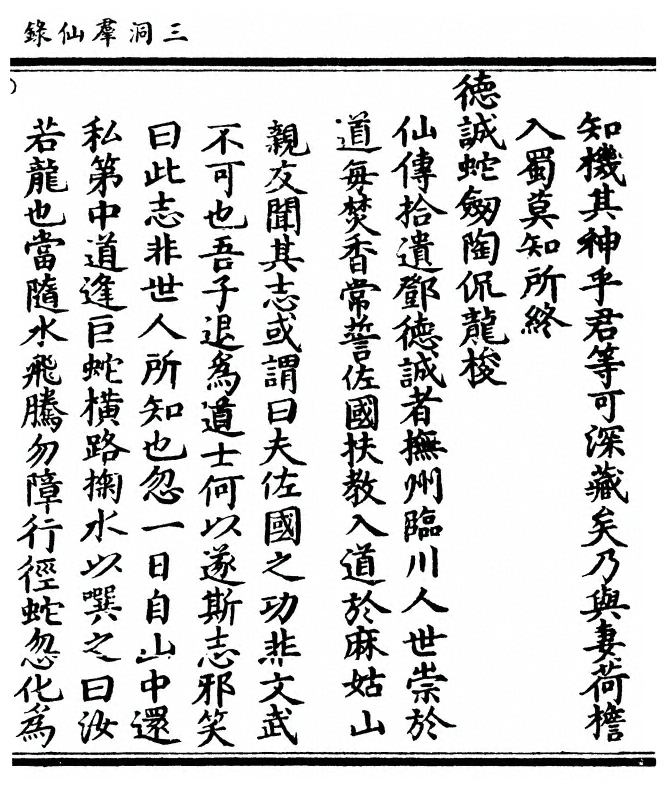 三洞羣仙錄
知機其神乎君等可深藏矣乃與妻荷檐
入蜀莫知所終
德誠蛇劒陶侃龍梭
仙傳拾遺鄧德誠者撫州臨川人世崇於
道每焚香常誓佐國扶教入道於麻姑山
親友聞其志或謂曰夫佐國之功非文武
不可也吾子退爲道士何以遂斯志邪笑
曰此志非世人所知也忽一日自山中還
私第中道逢巨蛇橫路掬水以噀之曰汝
若龍也當隨水飛騰勿障行徑蛇忽化爲